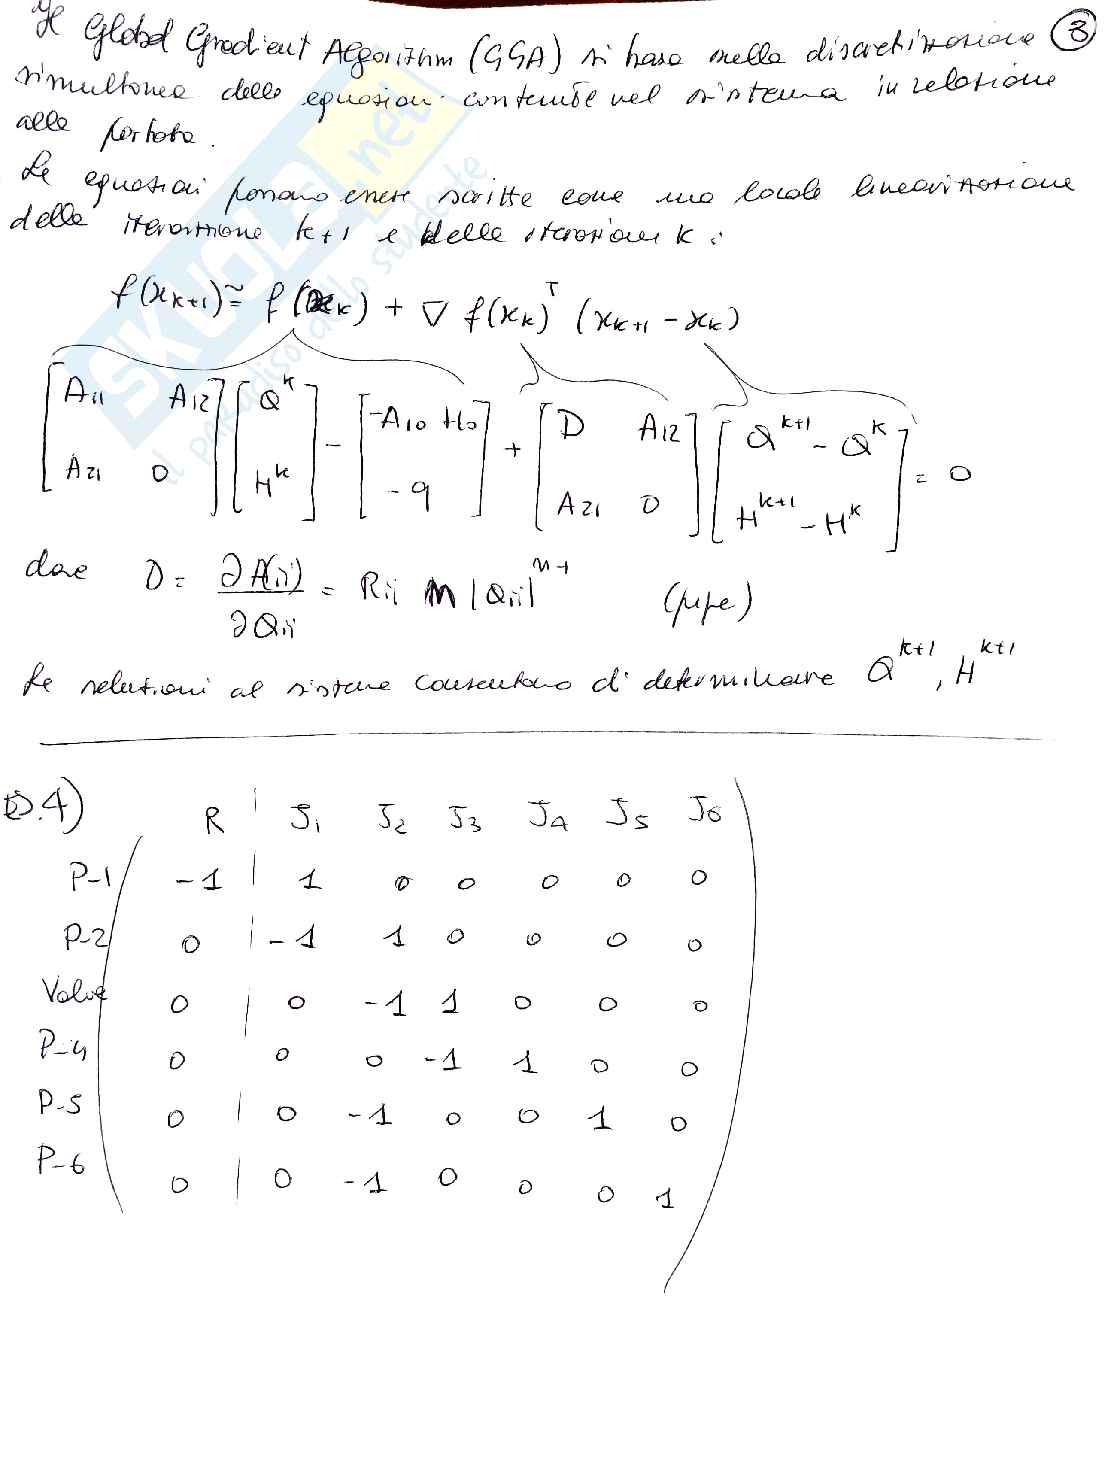 Il Global Gradient Algorithm (GGA) si basa nella discretizzazione 8
simultanea delle equazioni contenute nel sistema in relazione
alla portata.
Le equazioni possono essere scritte come una locale linearizzazione
della iterazione k+1 e delle iterazioni k :
f(x_{k+1}) ≃ f(x_k) + ∇ f(x_k)^T (x_{k+1} - x_k)
[A11 A12; A21 0] [Q^k; H^k] - [-A10 H0; -q] + [D A12; A21 0] [Q^{k+1} - Q^k; H^{k+1} - H^k] = 0
dove D = ∂A(ii)/∂Qii = Rii n |Qii|^{n-1} (pipe)
Le soluzioni al sistema consentono di determinare Q^{k+1}, H^{k+1}
D.4)
R | J1 J2 J3 J4 J5 J6
P-1 -1 | 1 0 0 0 0 0
P-2 0 | -1 1 0 0 0 0
Valve 0 | 0 -1 1 0 0 0
P-4 0 0 0 -1 1 0 0
P-5 0 | 0 -1 0 0 1 0
P-6 0 | 0 -1 0 0 0 1
SKUOLA.net
il paradiso dello studente